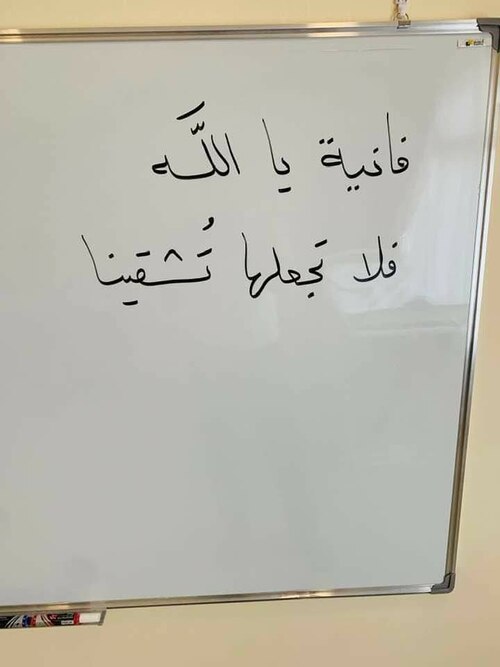 فانية يا اللَّه
فلا تجعلها تُشقينا